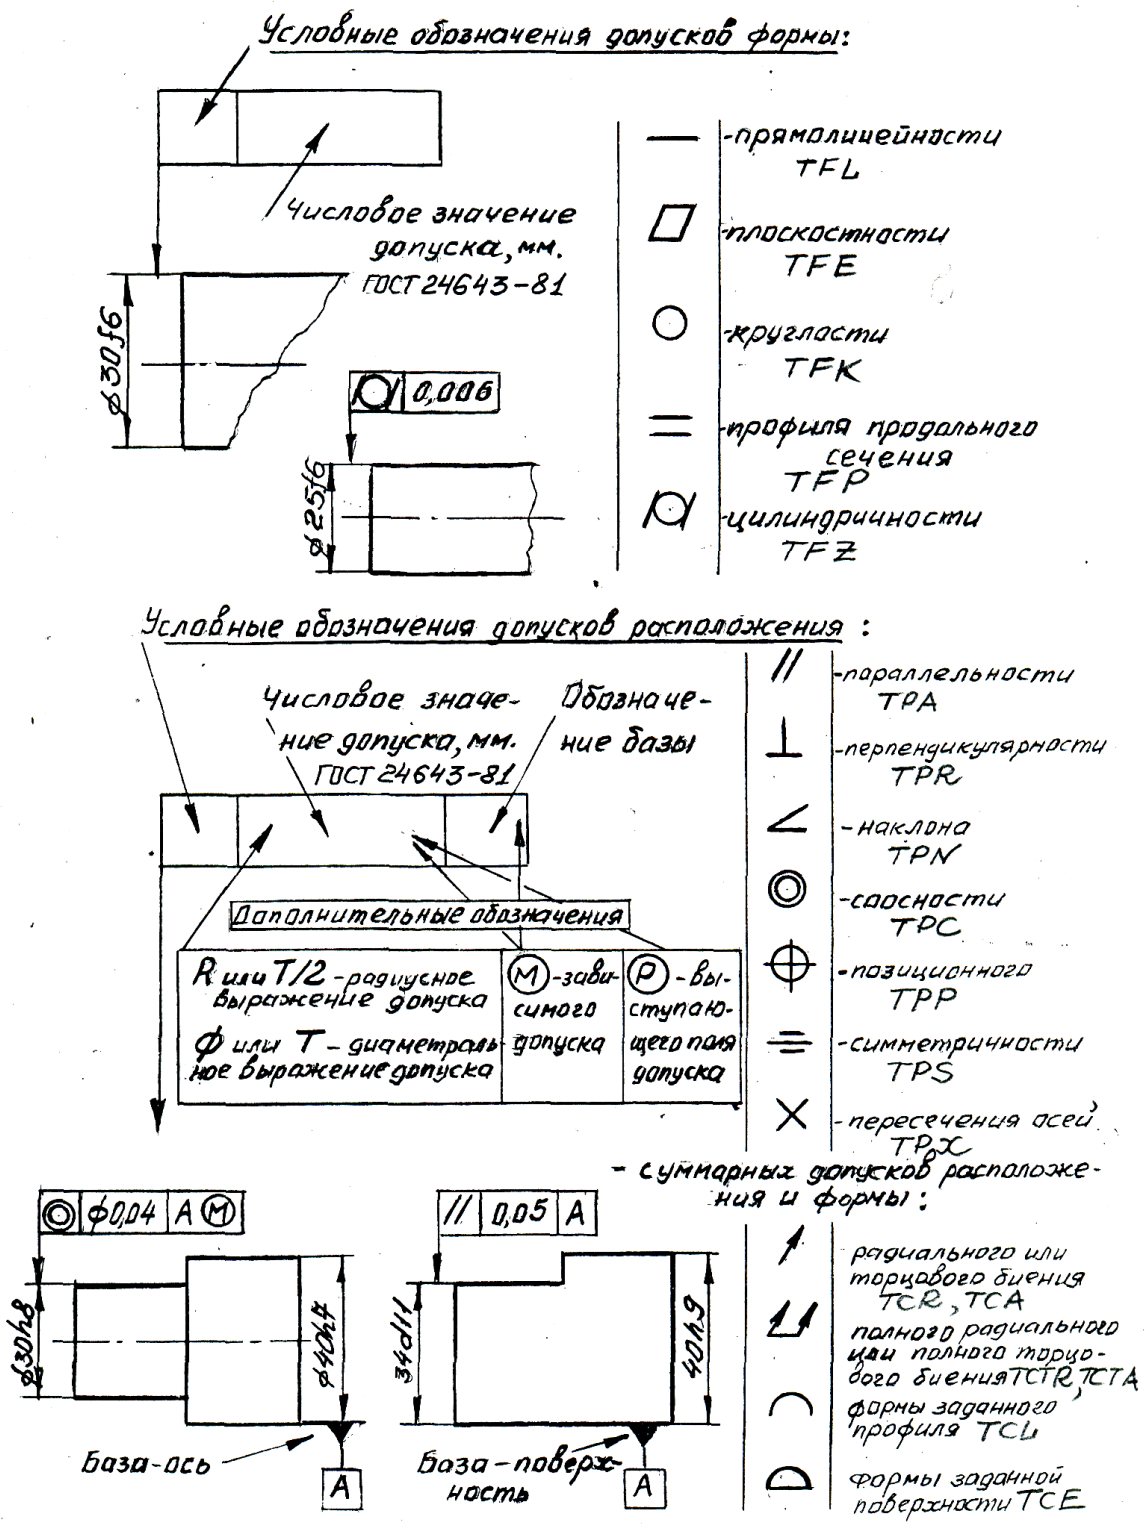 Условные обозначения допусков формы:
Числовое значение
допуска, мм.
ГОСТ 24643-81
ϕ30f6
0,006
ϕ25f6
-прямолинейности
TFL
-плоскостности
TFE
-круглости
TFK
-профиля продольного
сечения
TFP
-цилиндричности
TFZ
Условные обозначения допусков расположения :
Числовое значе-
ние допуска, мм.
ГОСТ 24643-81
Обозначе-
ние базы
Дополнительные обозначения
R или T/2 -радиусное
выражение допуска
ϕ или T - диаметраль-
ное выражение допуска
M -зави-
симого
допуска
P -вы-
ступаю-
щего поля
допуска
// -параллельности
TPA
-перпендикулярности
TPR
-наклона
TPN
-соосности
TPC
-позиционного
TPP
-симметричности
TPS
-пересечения осей
TPX
- суммарных допусков расположе-
ния и формы:
радиального или
торцового биения
TCR, TCA
полного радиального
или полного торцо-
вого биения TCTR, TCTA
формы заданного
профиля TCL
формы заданной
поверхности TCE
ϕ0,04 A M
ϕ30h8
ϕ40h7
База-ось
A
// 0,05 A
34d11
40h9
База-поверх-
ность
A